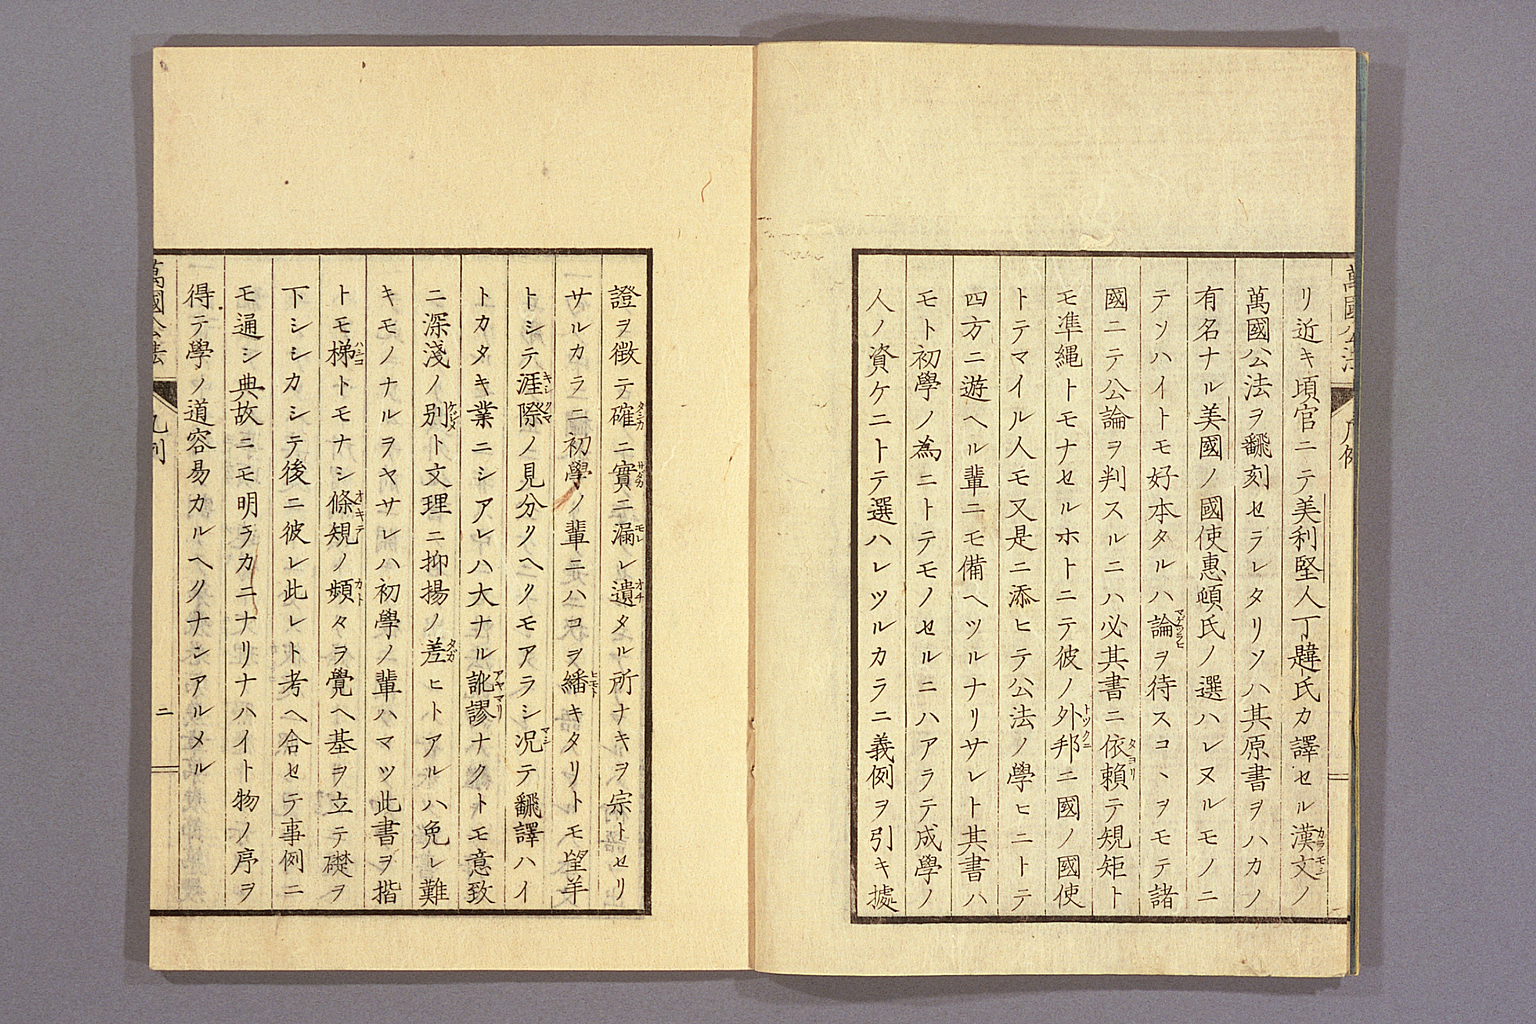 萬國公法
凡例
リ近キ頃官ニテ美利堅人丁韙氏カ譯セル漢文ノ
萬國公法ヲ飜刻セラレタリソハ其原書ヲハカノ
有名ナル美國ノ國使惠頓氏ノ選ハレヌルモノニ
テソハイトモ好本タルハ論ヲ待スコヽヲモテ諸
國ニテ公論ヲ判スルニハ必其書ニ依賴テ規矩ト
モ凖繩トモナセルホトニテ彼ノ外邦ニ國ノ國使
トテマイル人モ又是ニ添ヒテ公法ノ學ヒニトテ
四方ニ遊ヘル輩ニモ備ヘツルナリサレト其書ハ
モト初學ノ為ニトテモノセルニハアラテ成學ノ
人ノ資ケニトテ選ハレツルカラニ義例ヲ引キ據
證ヲ徴テ確ニ實ニ漏レ遺タル所ナキヲ宗トセリ
サルカラニ初學ノ輩ニハコヲ繙キタリトモ望羊
トシテ涯際ノ見分クヘクモアラシ况テ飜譯ハイ
トカタキ業ニシアレハ大ナル訛謬ナクトモ意致
ニ深淺ノ別ト文理ニ抑揚ノ差ヒトアルハ免レ難
キモノナルヲヤサレハ初學ノ輩ハマツ此書ヲ揩
トモ梯トモナシ條規ノ頗々ヲ覺ヘ基ヲ立テ礎ヲ
下シシカシテ後ニ彼レ此レト考ヘ合セテ事例ニ
モ通シ典故ニモ明ラカニナリナハイト物ノ序ヲ
得テ學ノ道容易カルヘクナンアルメル
萬國公法
凡例
二